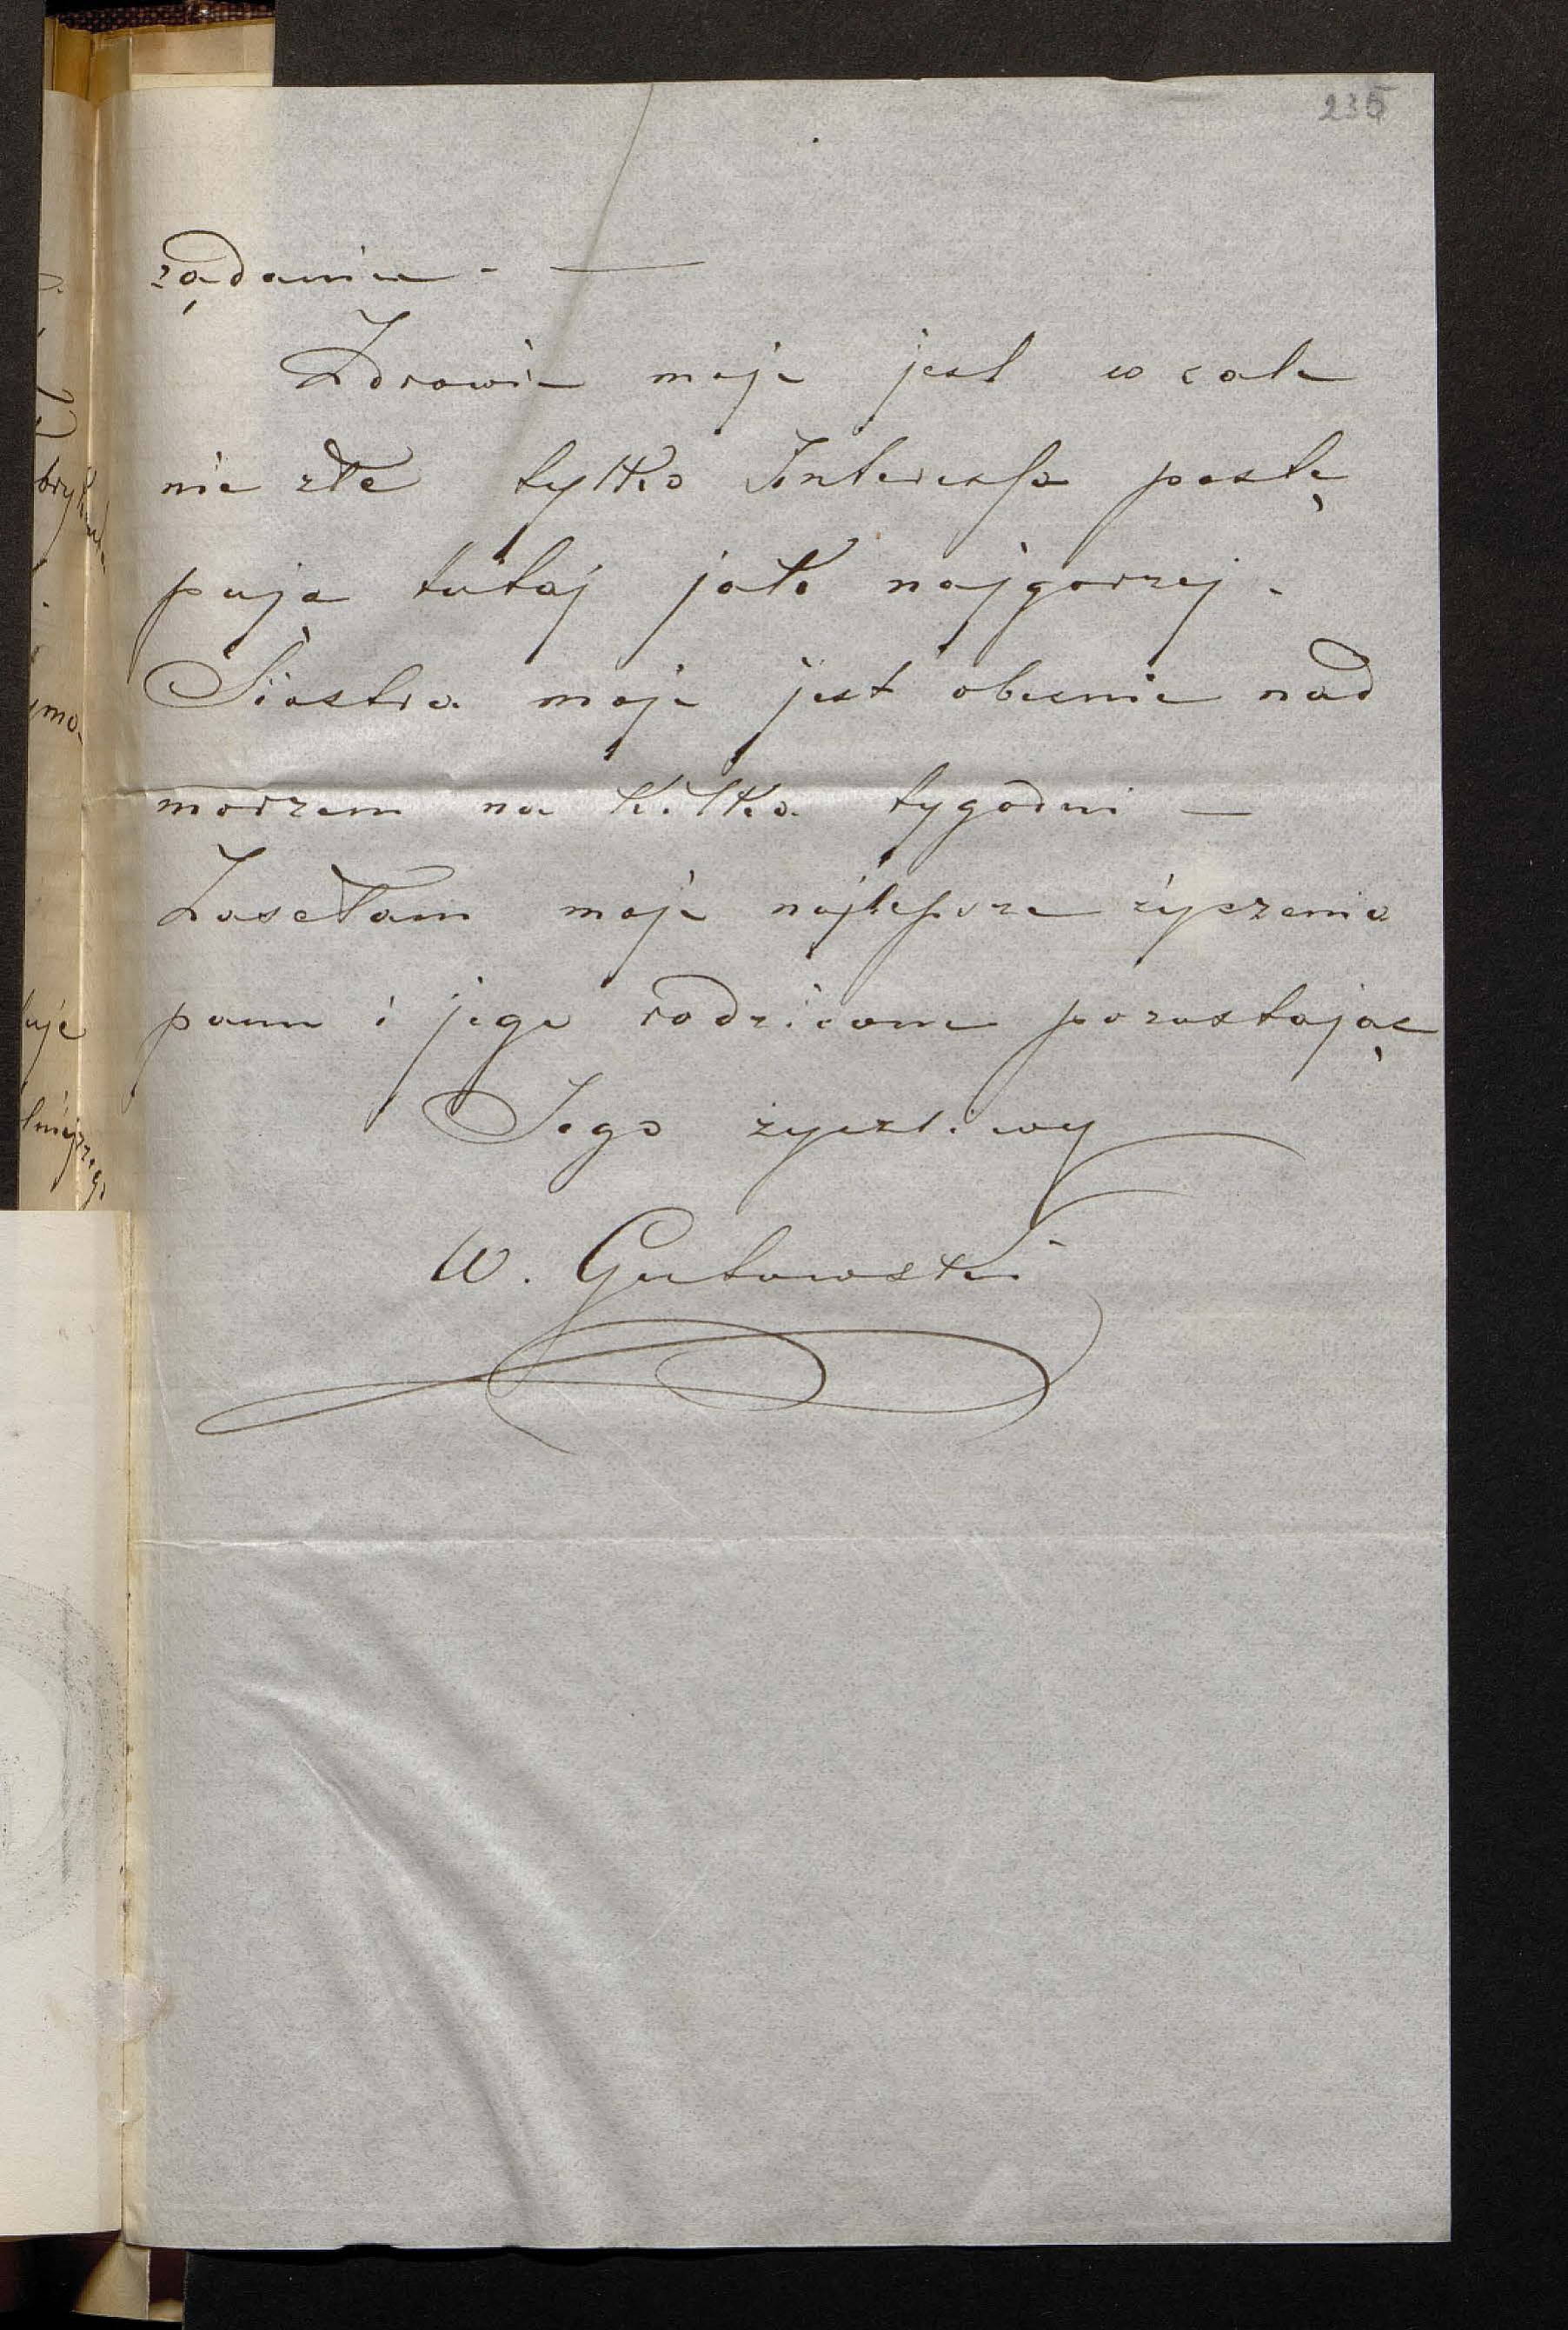 235
rądania - —
Zdrowie moje jest w cale
nie złe tylko Interessa postę
pują tutaj jak najgorzej -
Siostra moja jest obecnie nad
morzem na kilka tygodni —
Zasełam moje najlepsze życzenia
panu i jego rodzicom pozostając
Jego życzliwy
W. Gutowski